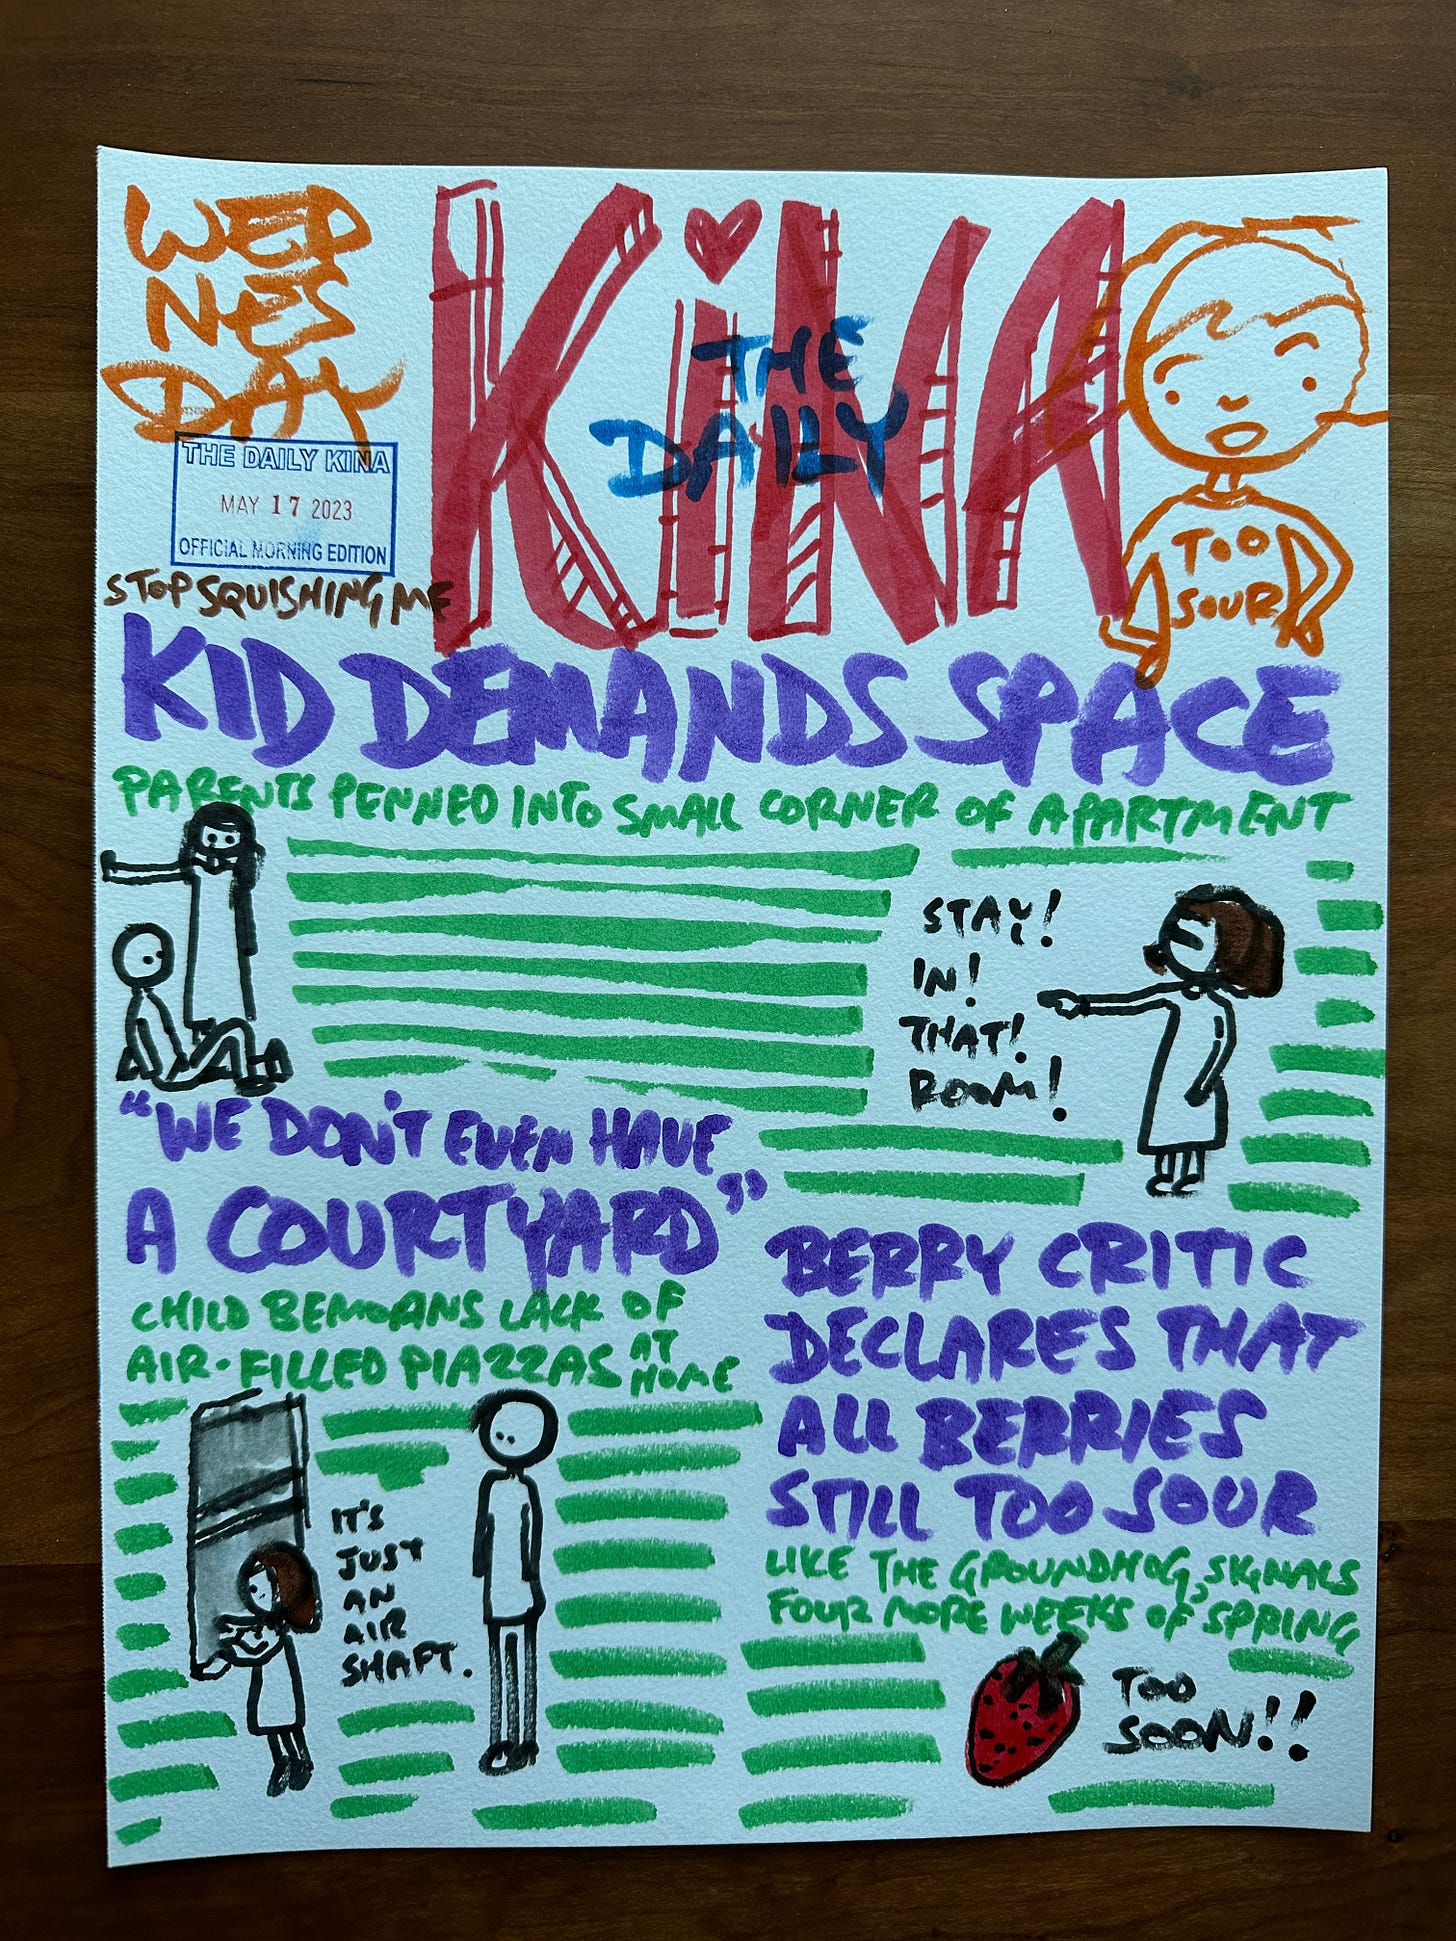 WED
NES
DAY
THE DAILY KINA
MAY 17 2023
OFFICIAL MORNING EDITION
KiNA
THE
DAILY
TOO
SOUR
STOP SQUISHING ME
KID DEMANDS SPACE
PARENTS PENNED INTO SMALL CORNER OF APARTMENT
STAY!
IN!
THAT!
ROOM!
"WE DON'T EVEN HAVE
A COURTYARD"
CHILD BEMOANS LACK OF
AIR-FILLED PIAZZAS AT
HOME
IT'S
JUST
AN
AIR
SHAFT.
BERRY CRITIC
DECLARES THAT
ALL BERRIES
STILL TOO SOUR
LIKE THE GROUNDHOG, SIGNALS
FOUR MORE WEEKS OF SPRING
TOO
SOON!!